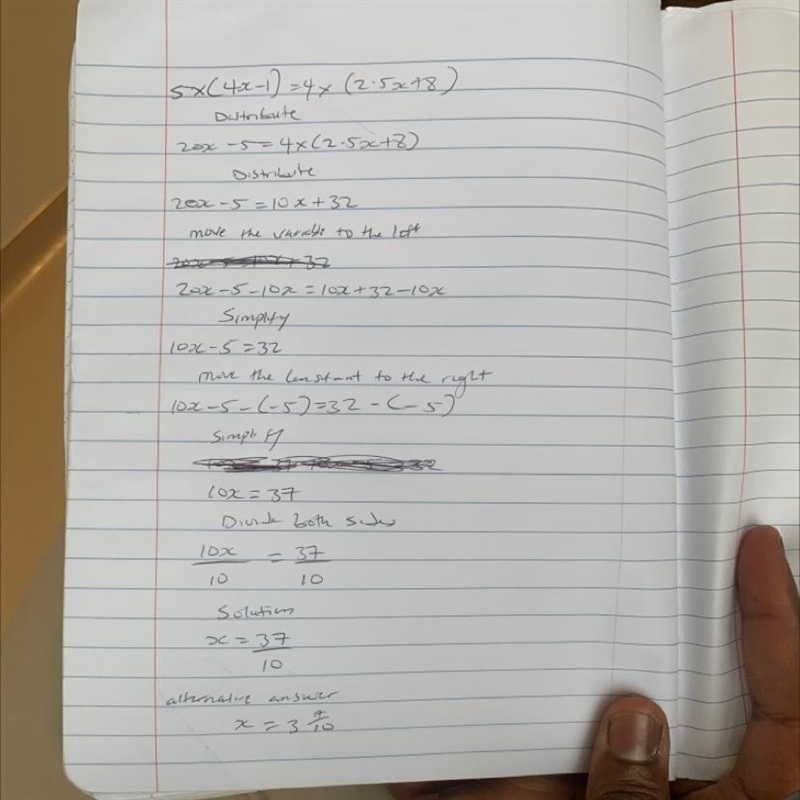 5×(4x-1)=4×(2.5x+8)
Distribute
20x-5=4×(2.5x+8)
Distribute
20x-5=10x+32
move the variable to the left
20x-5-10x=10x+32-10x
Simplify
10x-5=32
move the constant to the right
10x-5-(-5)=32-(-5)
Simplify
10x=37
Divide both sides
10x/10 = 37/10
Solution
x=37/10
alternative answer
x=3 7/10